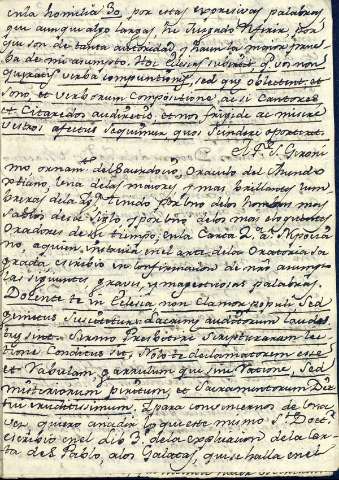 en la homilia 30, por estas expresivas palabras
que aunque algo largas he Juzgado referir, por
que son de tanta autoridad, y hacen la maior prue
ba de mi asumpto. Hoc Eclesias subvertit, quod vos non
quæratis verba compunctionis, sed quæ oblectent, et
sono et verborum Compositione, ac si Cantores
et Citarædos audiretis, et nos frigide ac misere
vestros afectus sequimur quos scindere oportebat.
S. P. S. Geroni
mo ornam.to del Sacerdocio, Oraculo del Mundo
xptiano, Una de las maiores, y mas brillantes lum
breras de la Ig.a, tenido por uno de los hombres mas
sabios de su siglo, y por uno de los mas eloquentes
Oradores de su tiempo, en la Carta 2.a a Nepocia
no, a quien instruia en el arte de la Oratoria sa
grada escribio en confirmacion de nro asumpto
las siguientes graves, y magestuosas palabras.
Docente te in Eclesia non Clamor populi sed
gemitus suscitetur: lacrimæ auditorum laudes
tuæ sint. Sermo Presbiteri scripturarum lec
tione Conditus sit. Nolo te declamatorem esse
et rabulam, garrulum que sine ratione, sed
misteriorum peritum, et Sacramentorum Dei
tui eruditissimum. Y para convencernos de una
vez, quiero anadir lo que este mismo S.to Doct.r
escribio en el lib 3.o de la explicacion de la Car
ta de S. Pablo, a los Galatas, que se halla en el